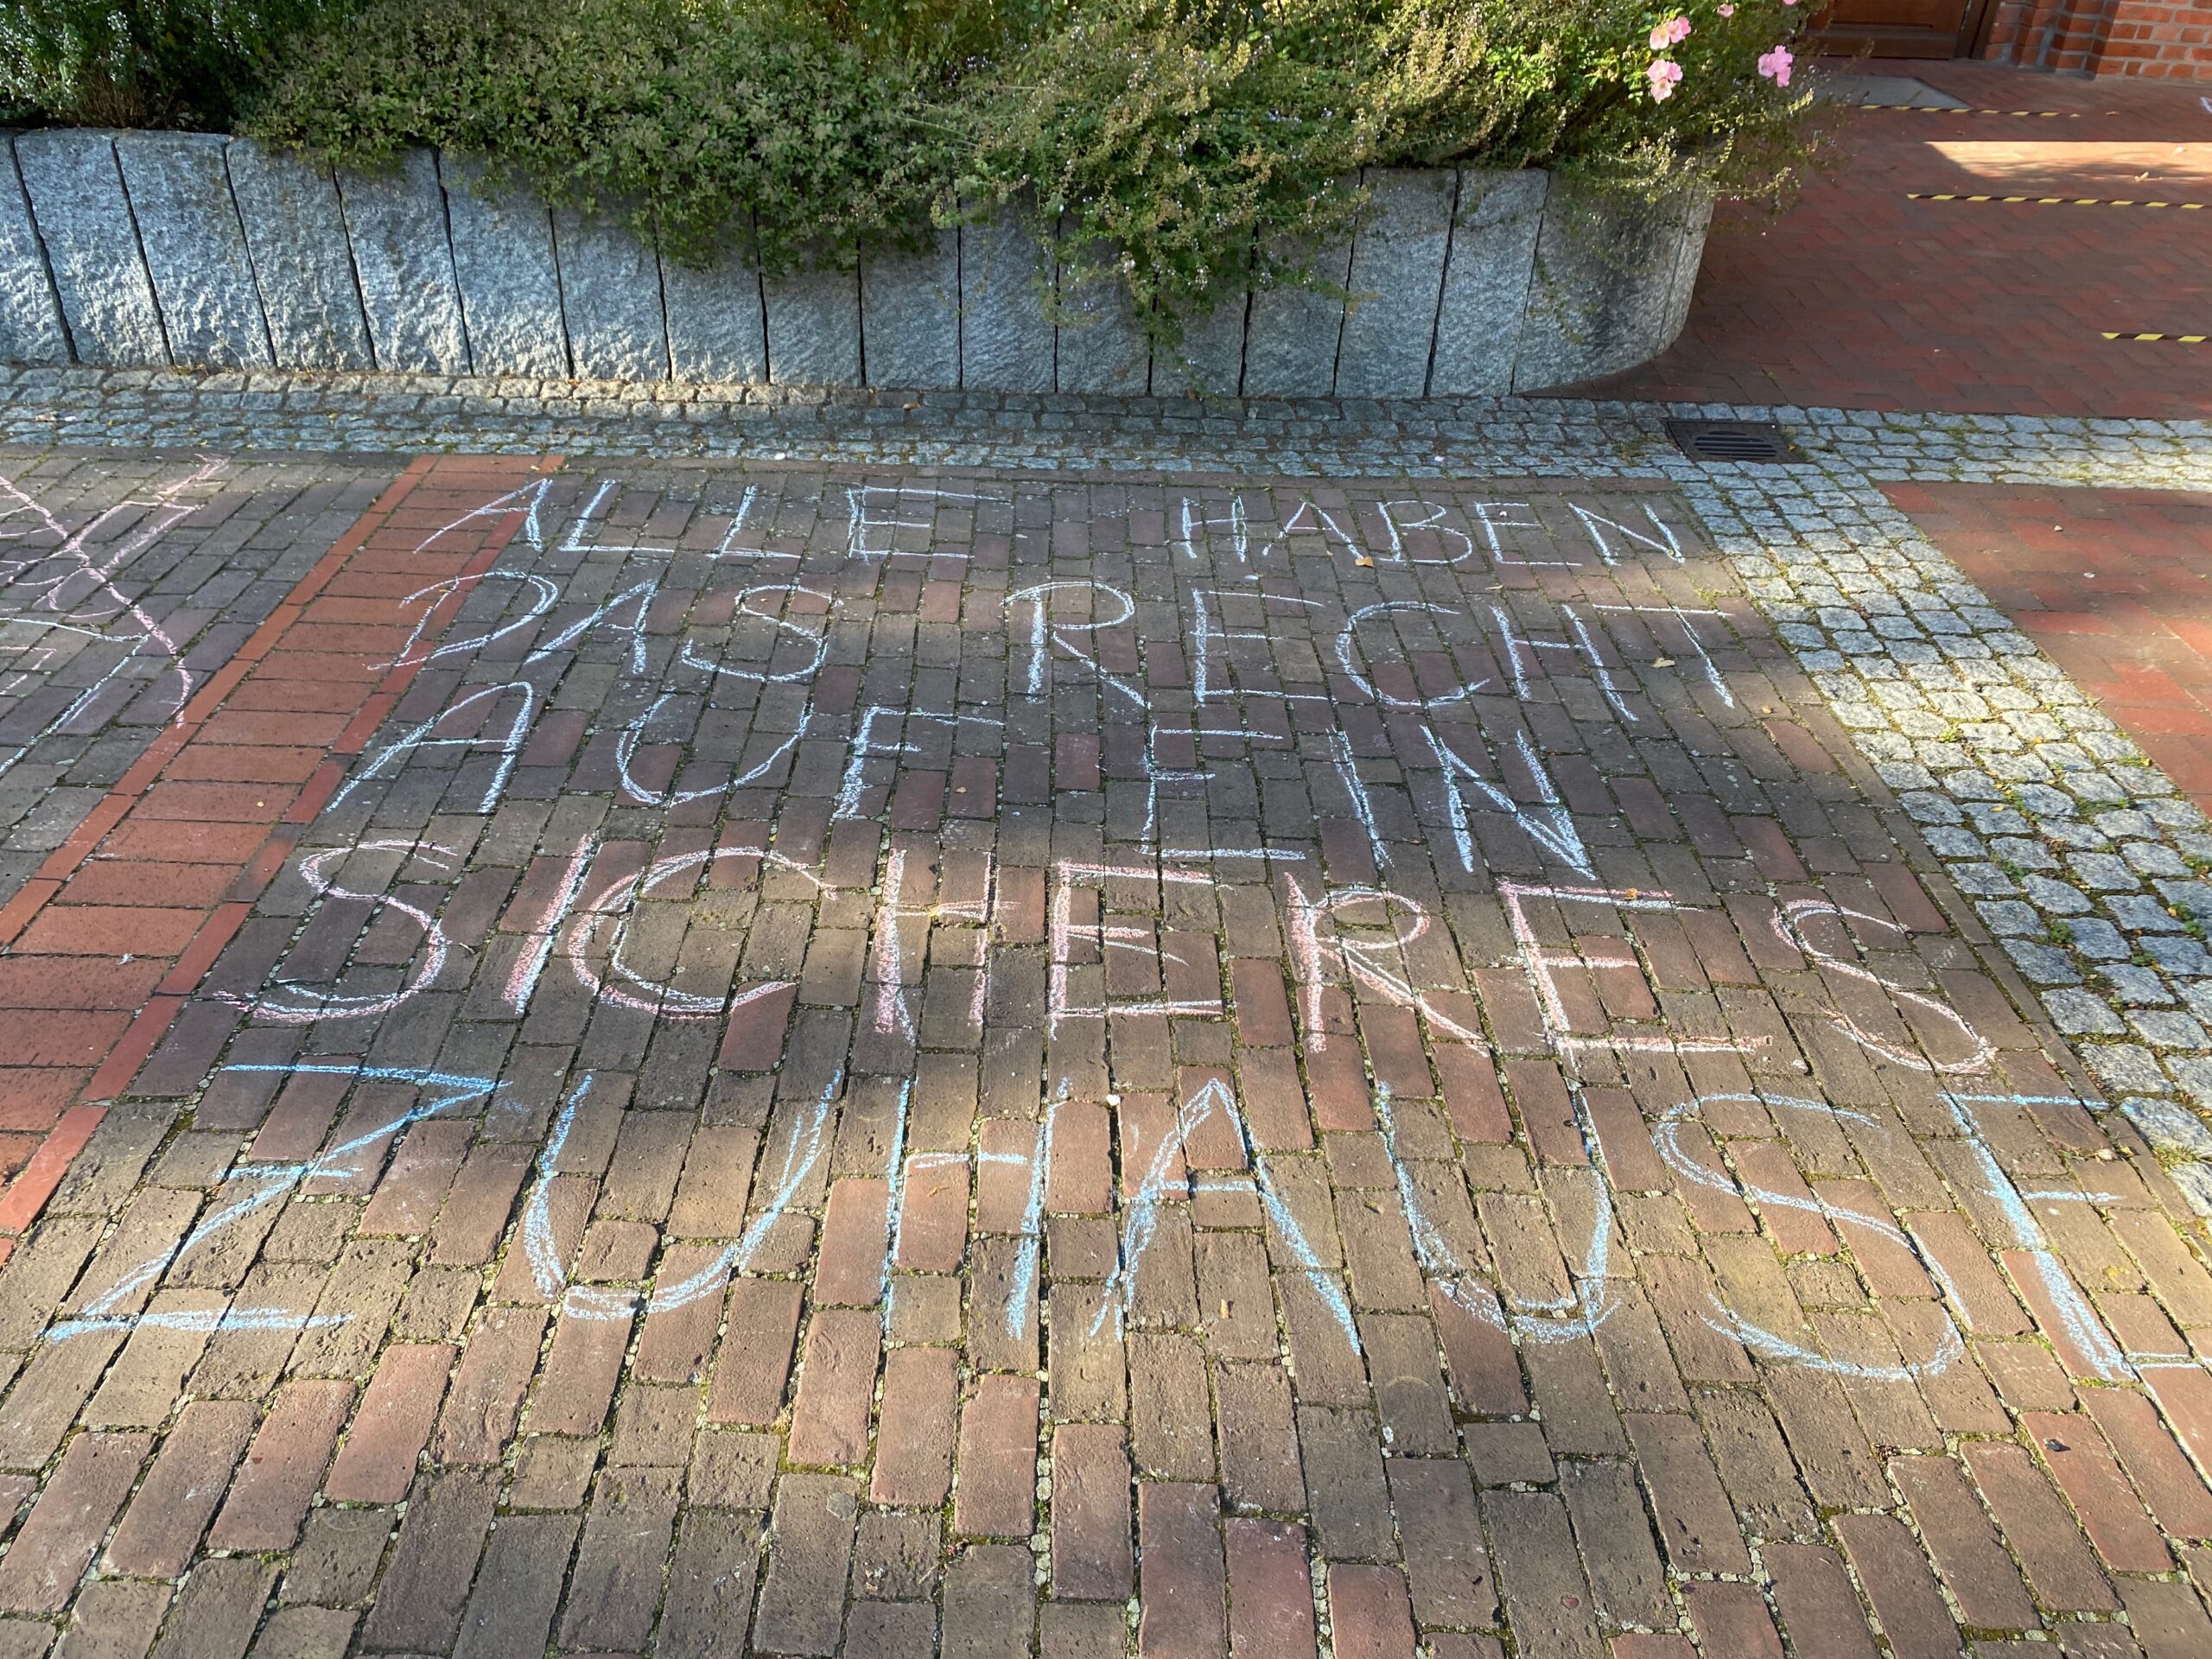 ALLE HABEN
DAS RECHT
AUF EIN
SICHERES
ZUHAUSE